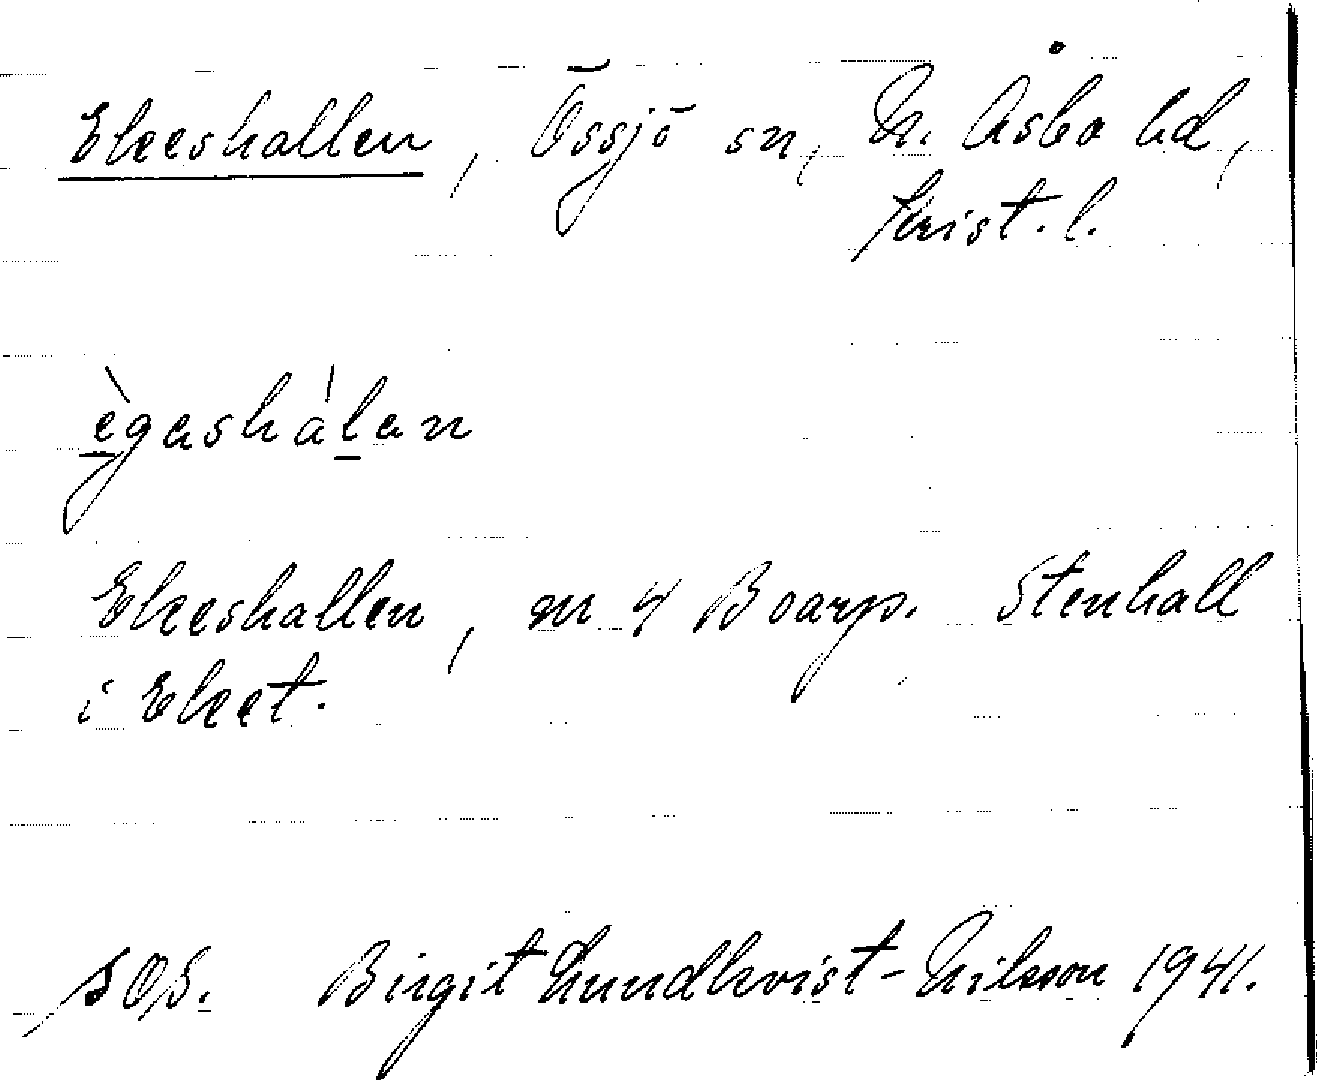 Ekeshallen, Össjö sn, N. Åsbo hd,
Krist. l.
ègashálan
Ekeshallen, nr 4 Boarp. Stenhall
i Eket.
SOS. Birgit Lundkvist-Nilsson 1941.